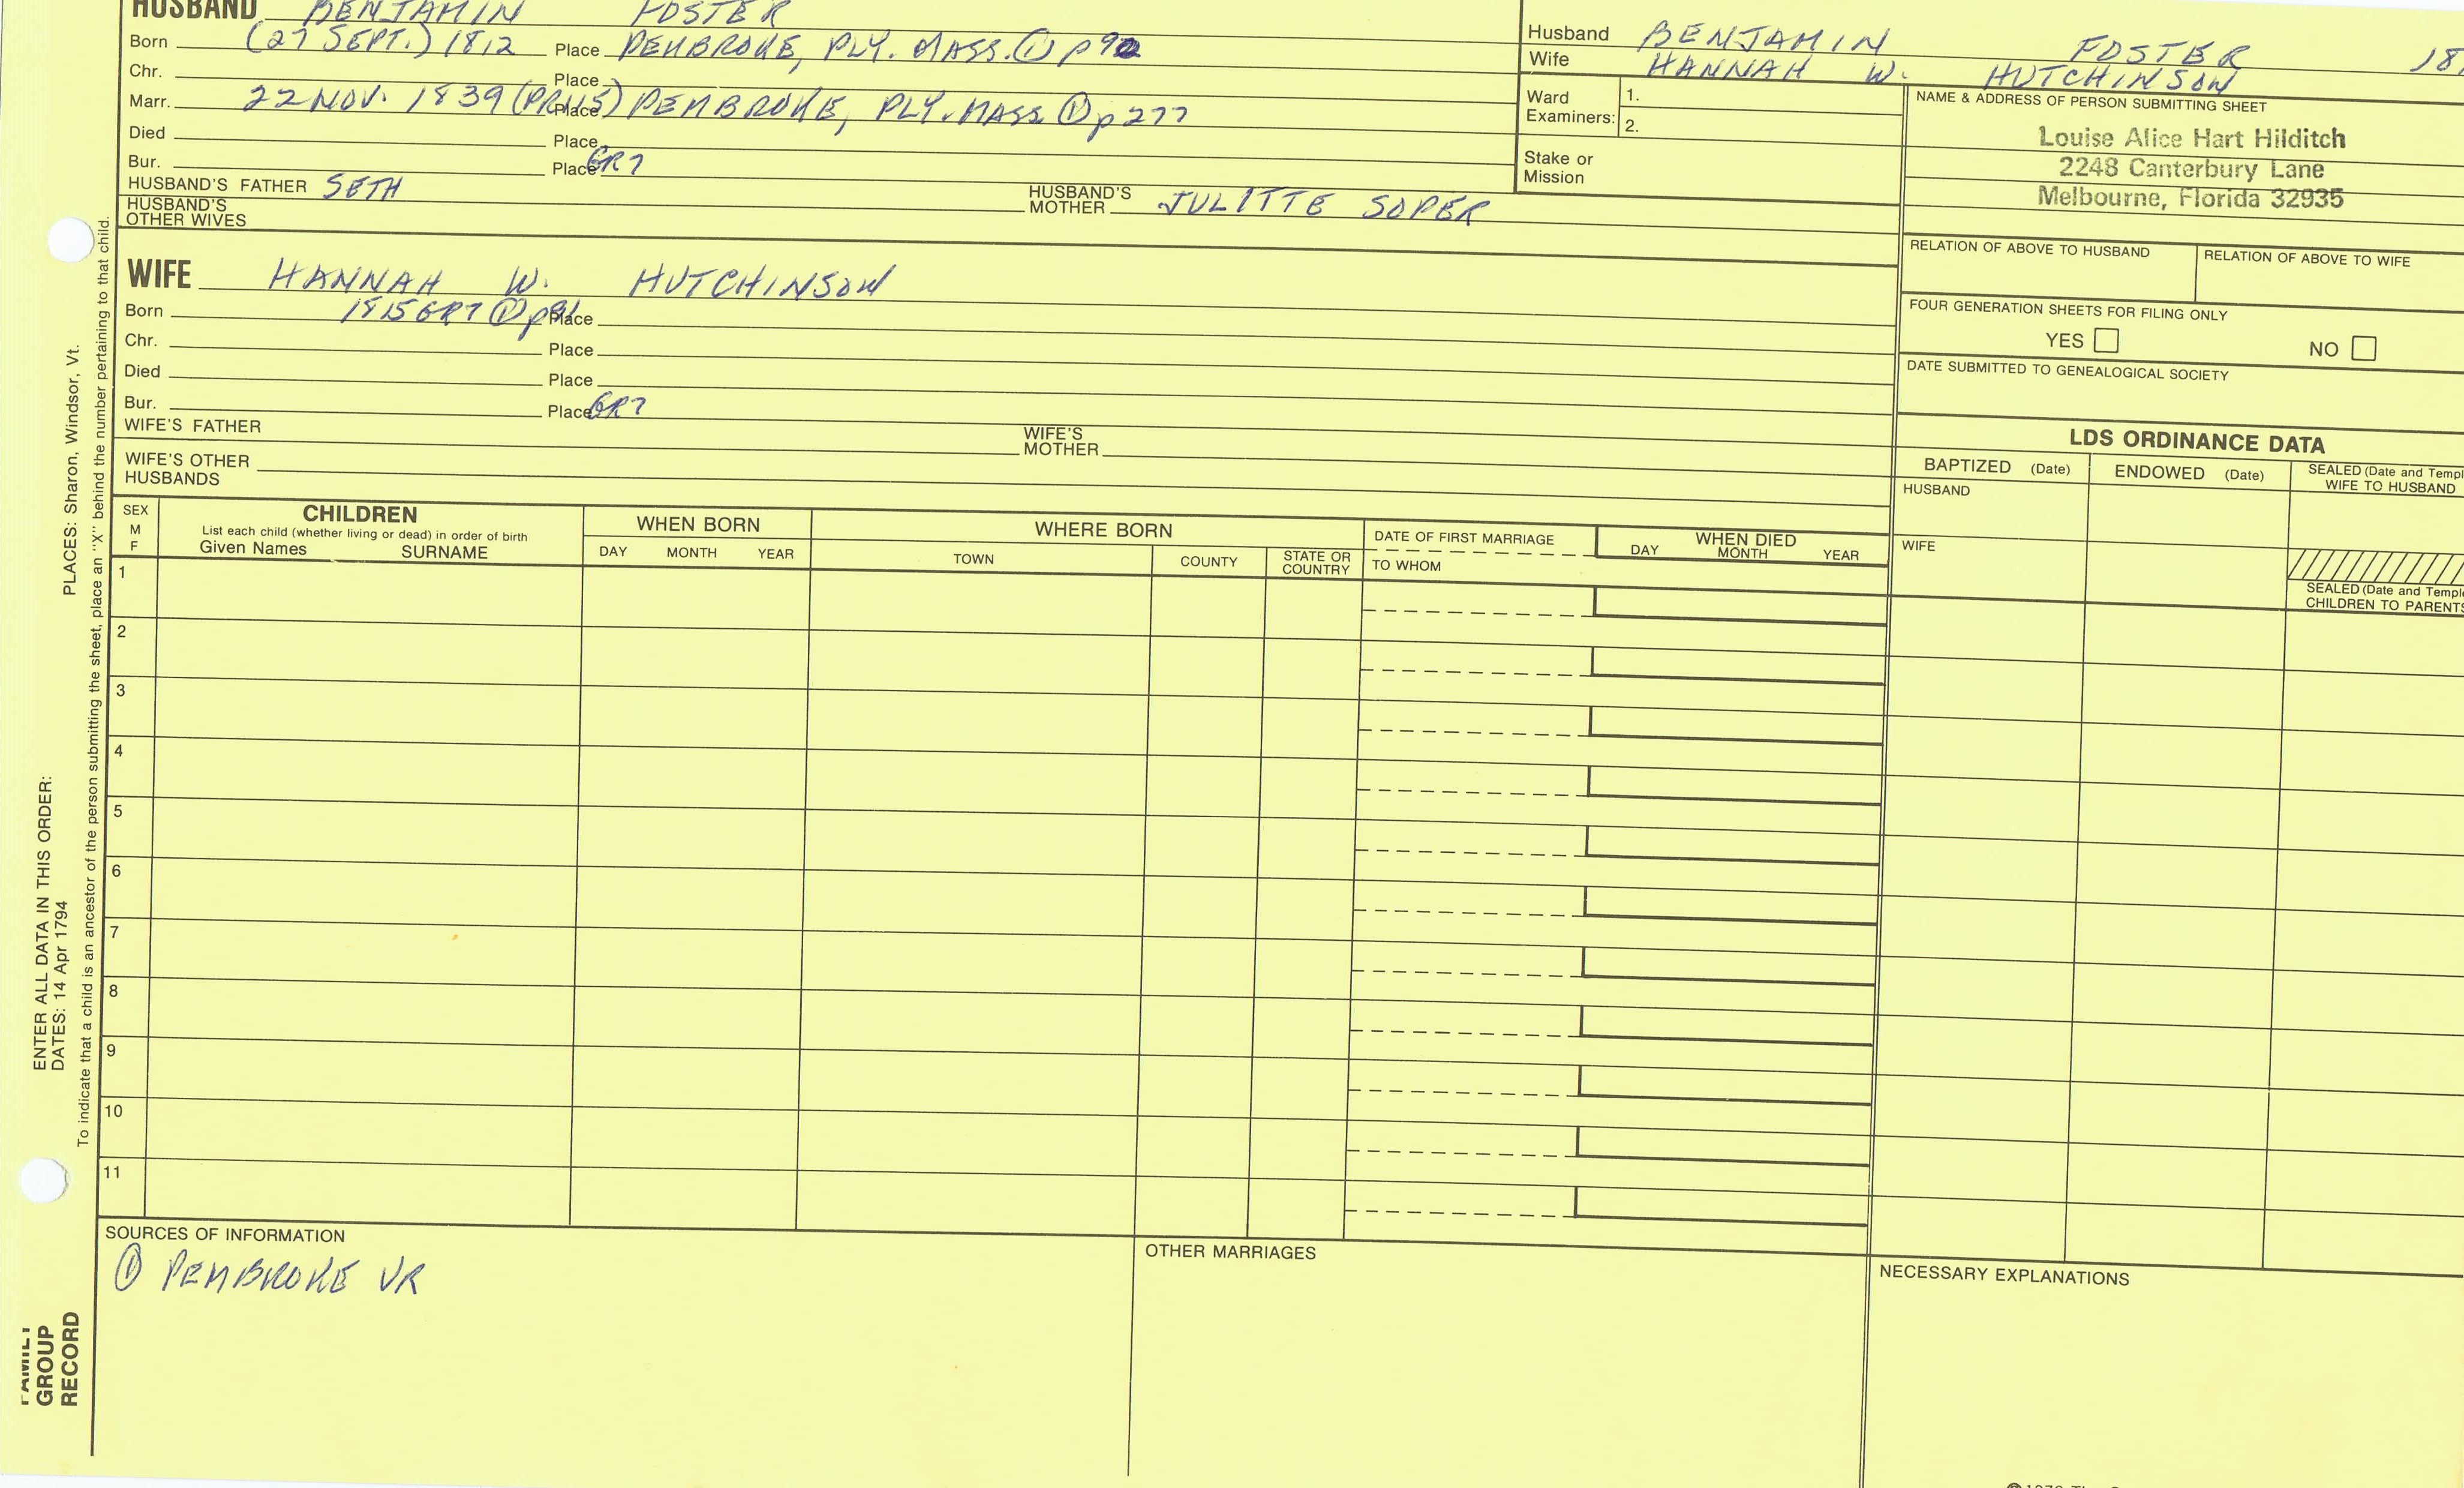 HUSBAND BENJAMIN FOSTER
Born (27 SEPT.) 1812 Place PEMBROKE, PLY. MASS. ① p 92
Chr. Place
Marr. 22 NOV. 1839 Place PEMBROKE, PLY. MASS. ① p 277
Died Place
Bur. Place GR7
HUSBAND'S FATHER SETH HUSBAND'S MOTHER JULITTE SOPER
HUSBAND'S OTHER WIVES
Husband BENJAMIN FOSTER 18
Wife HANNAH W. HUTCHINSON
Ward Examiners: 1.
2.
Stake or Mission
NAME & ADDRESS OF PERSON SUBMITTING SHEET
Louise Alice Hart Hilditch
2248 Canterbury Lane
Melbourne, Florida 32935
RELATION OF ABOVE TO HUSBAND RELATION OF ABOVE TO WIFE
FOUR GENERATION SHEETS FOR FILING ONLY
YES NO
DATE SUBMITTED TO GENEALOGICAL SOCIETY
WIFE HANNAH W. HUTCHINSON
Born 1815 GR7 ① p91 Place
Chr. Place
Died Place
Bur. Place GR7
WIFE'S FATHER WIFE'S MOTHER
WIFE'S OTHER HUSBANDS
LDS ORDINANCE DATA
BAPTIZED (Date) ENDOWED (Date) SEALED (Date and Templ
WIFE TO HUSBAND
HUSBAND
WIFE
SEALED (Date and Temple
CHILDREN TO PARENTS
SEX
M
F
CHILDREN
List each child (whether living or dead) in order of birth
Given Names SURNAME
WHEN BORN
DAY MONTH YEAR
WHERE BORN
TOWN COUNTY STATE OR COUNTRY
DATE OF FIRST MARRIAGE
TO WHOM
WHEN DIED
DAY MONTH YEAR
1
2
3
4
5
6
7
8
9
10
11
SOURCES OF INFORMATION
① PEMBROKE VR
OTHER MARRIAGES
NECESSARY EXPLANATIONS
PLACES: Sharon, Windsor, Vt.
ENTER ALL DATA IN THIS ORDER:
DATES: 14 Apr 1794
To indicate that a child is an ancestor of the person submitting the sheet, place an "X" behind the number pertaining to that child.
FAMILY
GROUP
RECORD